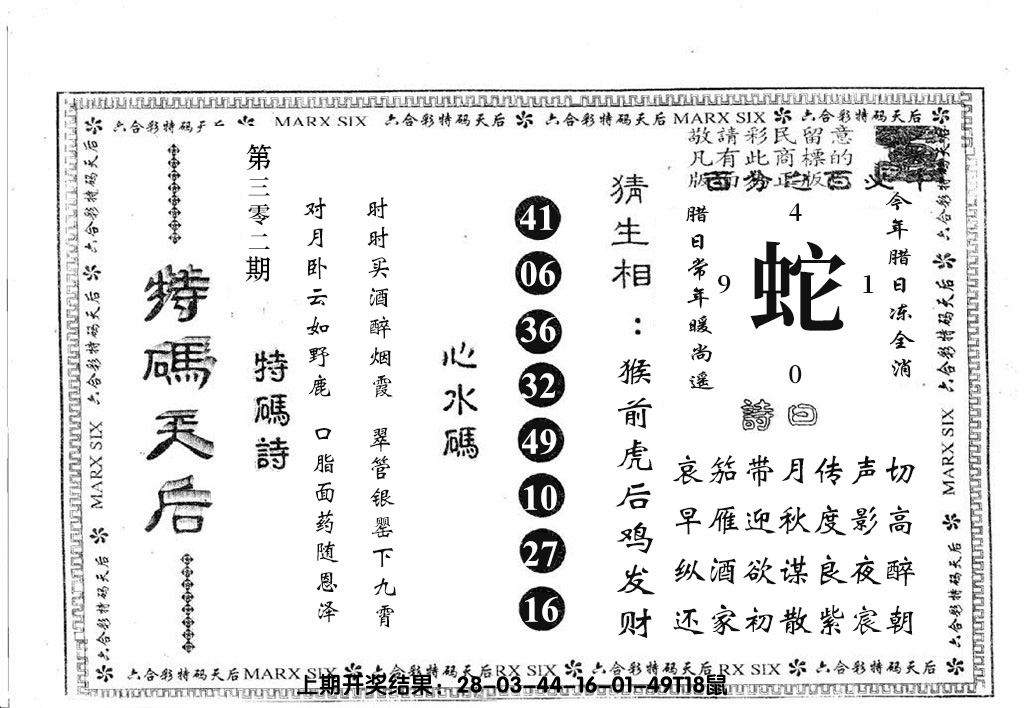 六合彩特码天后
MARX SIX
六合彩特码天后
六合彩特码天后
MARX SIX
六合彩特码天后
敬請彩民留意
凡有此商標的
特碼天后
第三零二期
特碼詩
对月卧云如野鹿 口脂面药随恩泽
时时买酒醉烟霞 翠管银罂下九霄
心水碼
41
06
36
32
49
10
27
16
猜生相：猴前虎后鸡发财
腊日常年暖尚遥
今年腊日冻全消
4
9 蛇 1
0
詩曰
哀笳带月传声切
早雁迎秋度影高
纵酒欲谋良夜醉
还家初散紫宸朝
六合彩特码天后
六合彩特码天后
MARX SIX
六合彩特码天后
六合彩特码天后
六合彩特码天后
MARX SIX
六合彩特码天后
六合彩特码天后 MARX SIX
六合彩特码天后RX SIX
六合彩特码天后 RX SIX
六合彩特码天后
上期开奖结果：28-03-44-16-01-49T18鼠